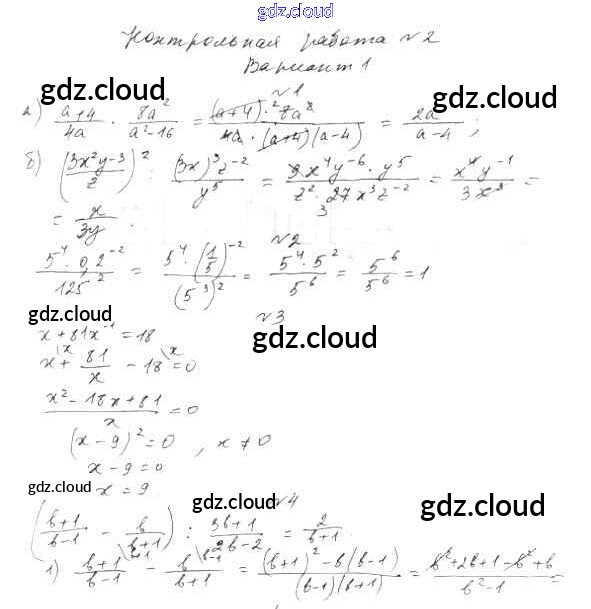 gdz.cloud
Контрольная работа №2
gdz.cloud
Вариант 1
gdz.cloud
№1
а) (a+4)/(4a) · (8a²)/(a²-16) = ((a+4)·²8a²)/(4a·(a+4)(a-4)) = 2a/(a-4);
б) ((3x²y-3)/z)² : ((3x)³z⁻²)/y⁵ = (9x⁴y⁻⁶·y⁵)/(z²·27x³z⁻²) = (x⁴y⁻¹)/(3x³) =
= x/(3y).
№2
(5⁴·0,2⁻²)/125² = (5⁴·(1/5)⁻²)/(5³)² = (5⁴·5²)/5⁶ = 5⁶/5⁶ = 1
gdz.cloud
№3
gdz.cloud
x+81x⁻¹=18
x\x + 81/x - 18\x = 0
(x²-18x+81)/x = 0
(x-9)²=0, x≠0
x-9=0
gdz.cloud
x=9.
gdz.cloud
№4
gdz.cloud
((b+1)/(b-1) - b/(b+1)) : (3b+1)/(2b-2) = 2/(b+1)
1) (b+1)/(b-1)\b+1 - b/(b+1)\b-1 = ((b+1)²-b(b-1))/((b-1)(b+1)) = (b²+2b+1-b²+b)/(b²-1) =